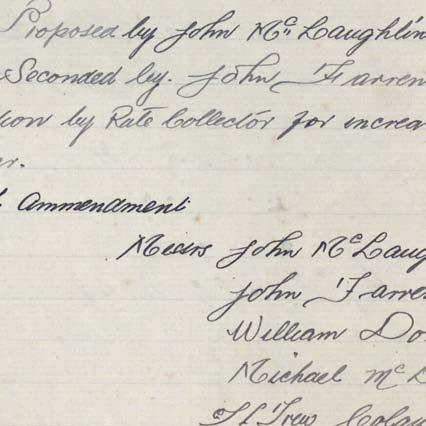 Proposed by John McLaughlin
Seconded by. John Farren
by Rate Collector for increa
er.
Ammendment
Messrs John McLaug
John Farre
William Do
Michael McD